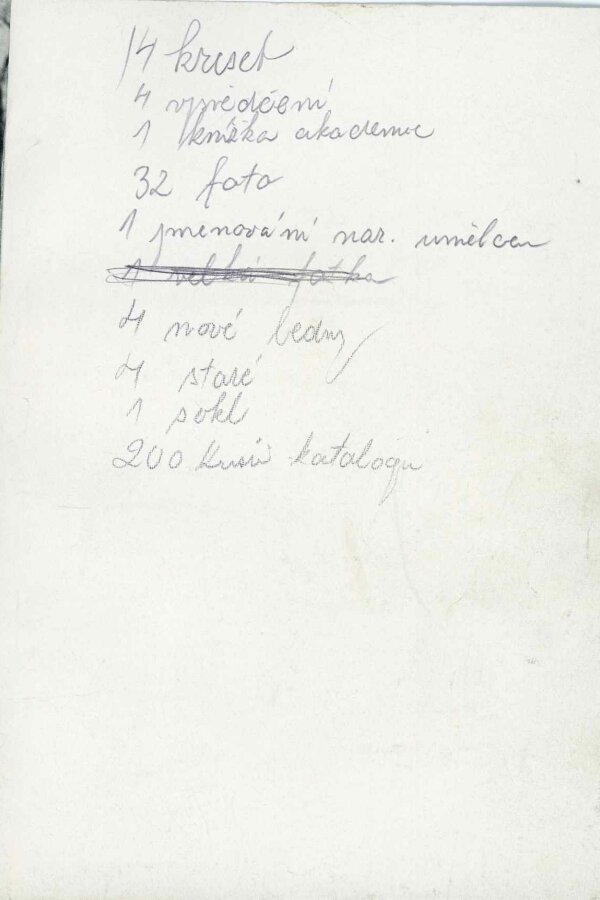 14 kreseb
4 vysvědčení
1 knížka akademie
32 foto
1 jmenování nar. umělcem
1 velká fotka
4 nové bedny
4 staré
1 sokl
200 kusů katalogů